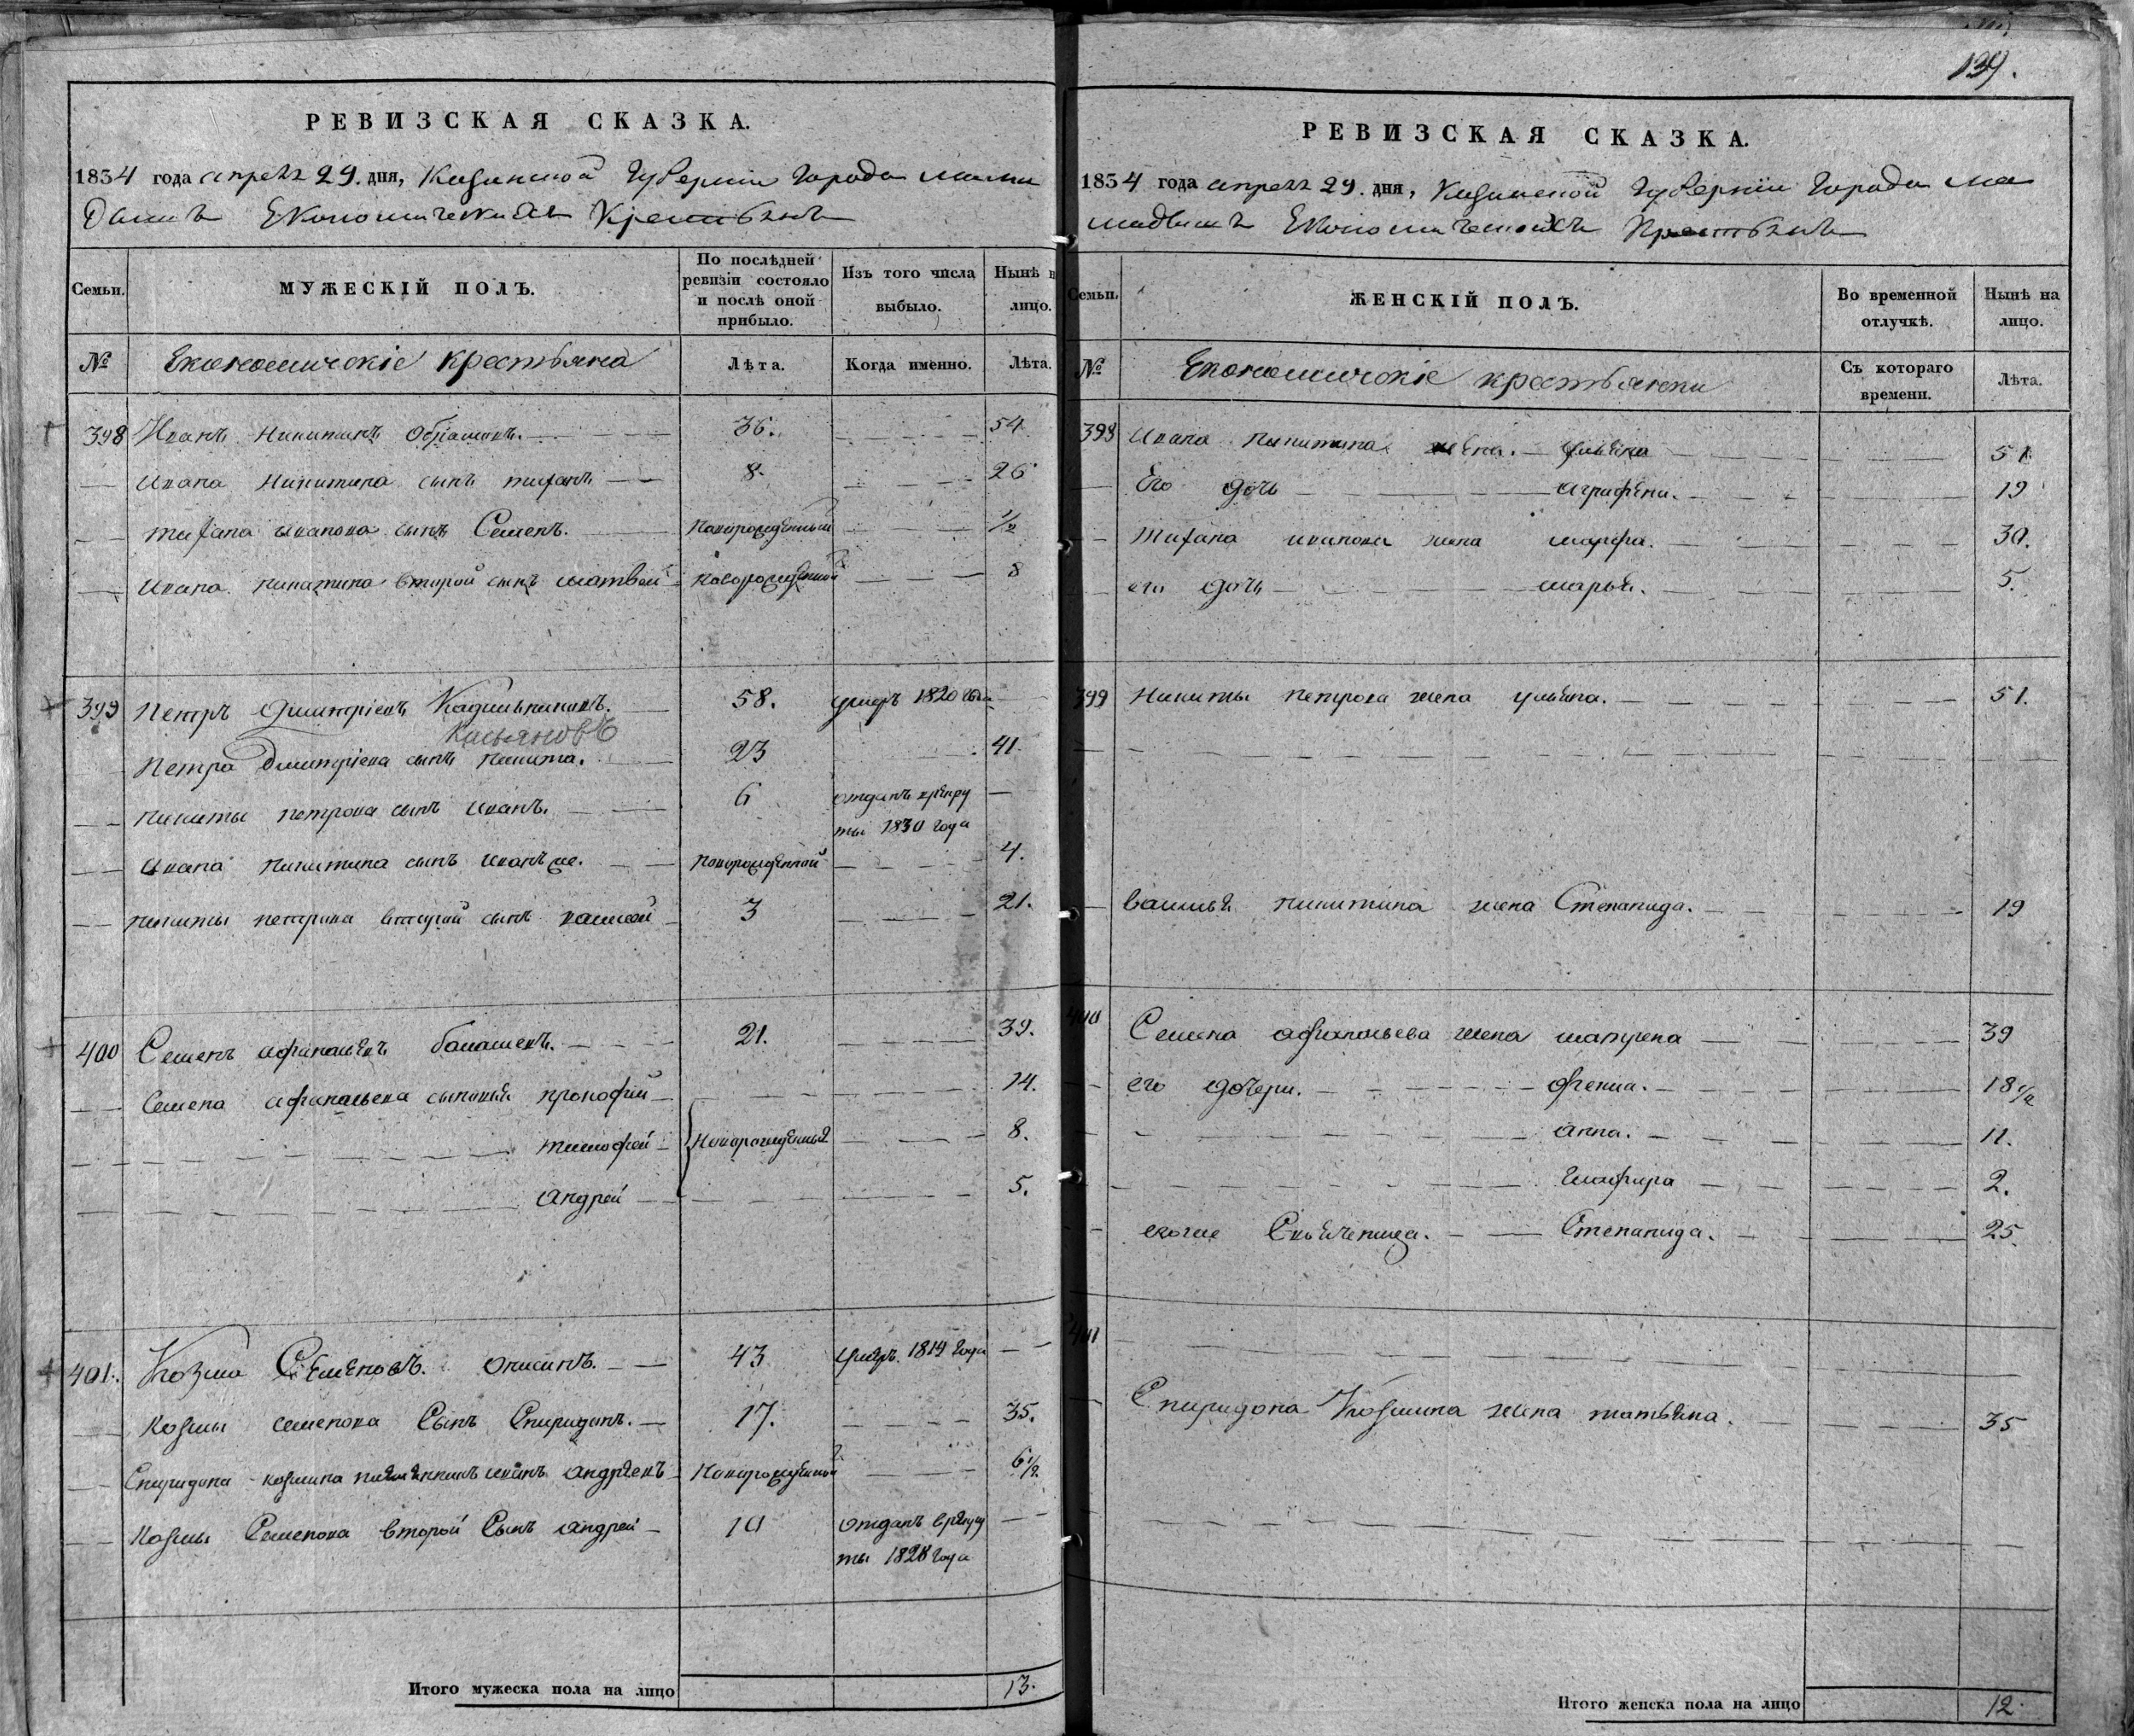 РЕВИЗСКАЯ СКАЗКА.
1834 года апреля 29. дня, Казанской Губернии города мама
дышъ Економическихъ Крестьянъ
Семьи.
МУЖЕСКІЙ ПОЛЪ.
По послѣдней ревизіи состояло и послѣ оной прибыло.
Изъ того числа выбыло.
Нынѣ н лицо.
№
Економическіе крестьяна
Лѣта.
Когда именно.
Лѣта.
398 Иванъ Никитинъ 36. 54
Ивана Никитина сынъ тифанъ 8. 26
тифана иванова сынъ Семенъ. новорожденный 1/2
Ивана никитина второй сынъ матвей новорожденной 8
399 Петръ Дмитріевъ 58. умеръ 1820 года
Касьяновъ
Петра Дмитріева сынъ никита. 23 41
никиты петрова сынъ иванъ. 6 отданъ врекру
ты 1830 года
ивана никитина сынъ иванъ же. новорожденной 4.
никиты петрова вторый сынъ 3 21.
400 Семенъ афанасьевъ балашевъ. 21. 39.
Семена афанасьева сыновья прокофий 14.
тимофей новорожденныя 8.
андрей 5.
401. Козма Семеновъ. 43 умеръ. 1819 года
козмы семенова Сынъ Спиридонъ. 17. 35.
Спиридона козмина племянникъ иванъ андреевъ новорожденной 6 1/2
козмы Семенова второй Сынъ андрей 10 отданъ врекру
ты 1828 года
Итого мужеска пола на лицо 13.
139.
РЕВИЗСКАЯ СКАЗКА.
1834 года апреля 29. дня, Казанской Губернии Города ма
мадышъ Економическихъ Крестьянъ
Семьи.
ЖЕНСКІЙ ПОЛЪ.
Во временной отлучкѣ.
Нынѣ на лицо.
№
Економическіе крестьянки
Съ котораго времени.
Лѣта.
398 Ивана никитина жена. ульяна 51
Его дочь аграфена. 19
Тифана иванова жена марфа. 30.
его дочь марья. 5.
399 Никиты петрова жена ульяна. 51.
василья никитина жена Степанида. 19
400 Семена афанасьева жена матрена 39
его дочери. 18 1/2
анна. 11.
глафира 2.
Степанида. 25.
401
Спиридона Козмина жена татьяна. 35
Итого женска пола на лицо 12.